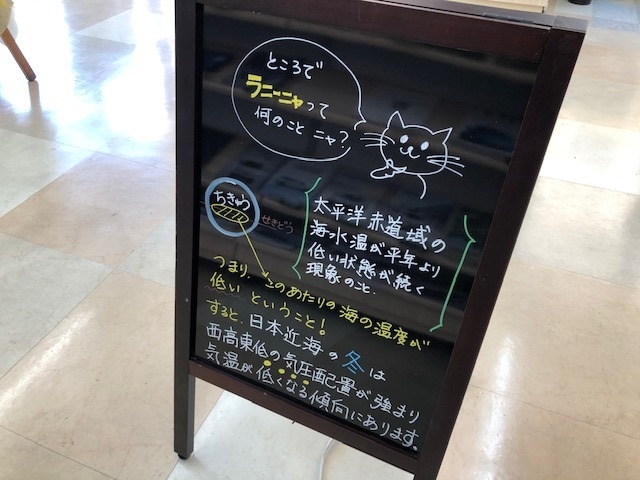 ところで
ラニーニャって
何のこと ニャ?
ちきゅう
せきどう
太平洋赤道域の
海水温が平年より
低い状態が続く
現象のこと.
つまり、このあたりの海の温度が
低い ということ!
すると、日本近海の冬は
西高東低の気圧配置が強まり
気温が低くなる傾向にあります.